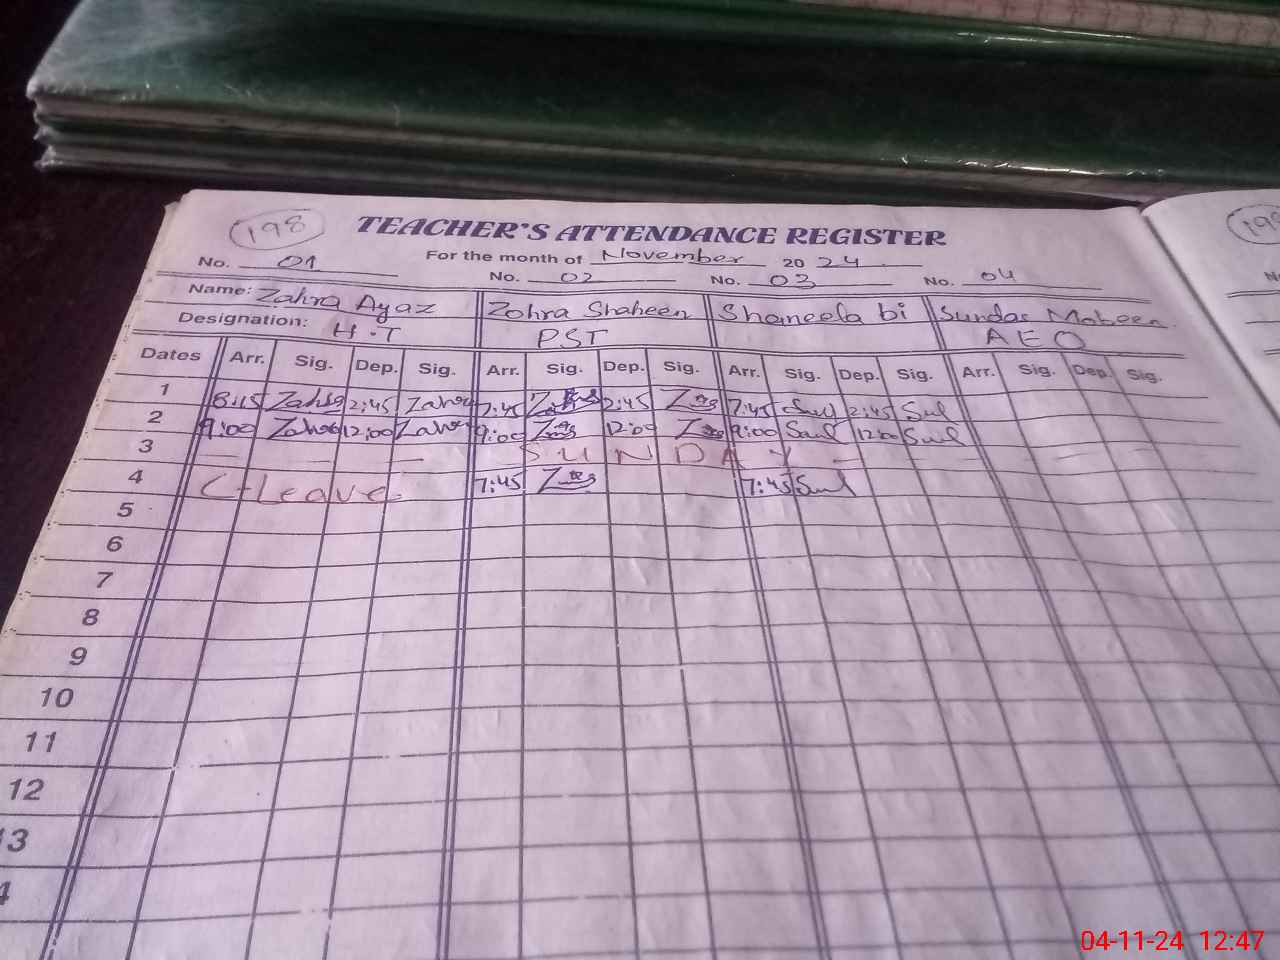 198
TEACHER'S ATTENDANCE REGISTER
For the month of November 2024
No. 01 No. 02 No. 03 No. 04
Name: Zahra Ayaz Zohra Shaheen Shaneela bi Sundas Mobeen
Designation: H.T PST AEO
Dates Arr. Sig. Dep. Sig. Arr. Sig. Dep. Sig. Arr. Sig. Dep. Sig. Arr. Sig. Dep. Sig.
1 8:15 Zahra 2:45 Zahra 7:45 2:45 7:45 2:45
2 9:00 Zahra 12:00 Zahra 9:00 12:00 9:00 12:00
3 SUNDAY
4 C-Leave 7:45 7:45
5
6
7
8
9
10
11
12
13
04-11-24 12:47